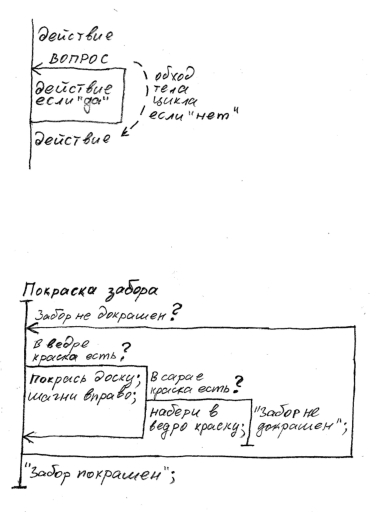 действие
вопрос
действие
если "да"
обход
тела
цикла
если "нет"
действие
Покраска забора
Забор не докрашен?
В ведре
краска есть?
Покрась доску;
шагни вправо;
В сарае
краска есть?
набери в
ведро краску;
"Забор не
докрашен";
"Забор покрашен";